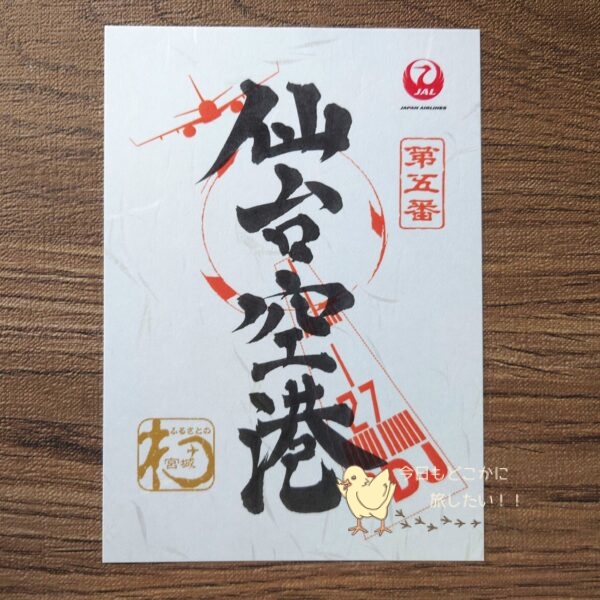 JAL
JAPAN AIRLINES
第五番
仙台空港
27
ふるさとの
宮城
今日もどこかに
旅したい！！